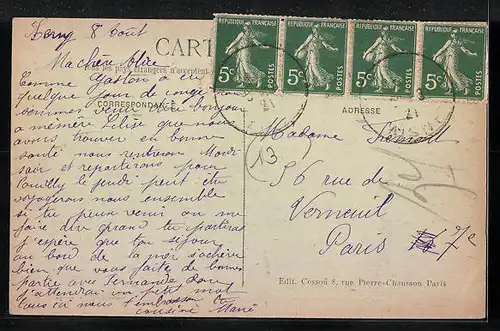 8 Août
Ma chère Alice
CARTE
REPUBLIQUE FRANÇAISE REPUBLIQUE FRANÇAISE REPUBLIQUE FRANÇAISE REPUBLIQUE FRANÇAISE
5c POSTES 5c POSTES 5c POSTES 5c POSTES
21
21
AISNE
Tous les pays étrangers n'acceptent
Comme Gaston a eu
quelque jour de congé nous
CORRESPONDANCE
ADRESSE
sommes venus bonjour
a mémère que nous
avons trouver en bonne
santé nous rentrons
sair et repartirons pour
le jeudi peut être
voyagerons nous ensemble
si tu peux venir ou me
faire dire quand tu partiras
j'espère que ton séjour
au bord de la mer s'achève
bien que vous faite de bonnes
partie avec Fernande
s'attendrai un petit mot
Tous ici nous t'embrassons
cousine Marie
13
Madame
56 rue de
Verneuil
Paris 7e
Edit. Cosson 8, rue Pierre-Chausson Paris